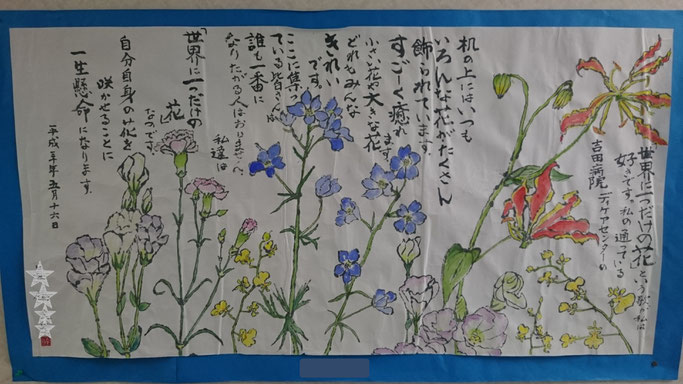 「世界に一つだけの花」という歌が私は
好きです。私の通っている
吉田病院デイケアセンターの
机の上にはいつも
いろんな花がたくさん
飾られています。
すごーく癒れ
ます。
小さい花や大きな花
どれもみんな
きれい
です。
ここに集っ
ている皆さんは
誰も一番に
なりたがる人はおりません
私達は
「世界に一つだけの
花」
なのです。
自分自身の花を
咲かせることに
一生懸命になります。
年五月十六日